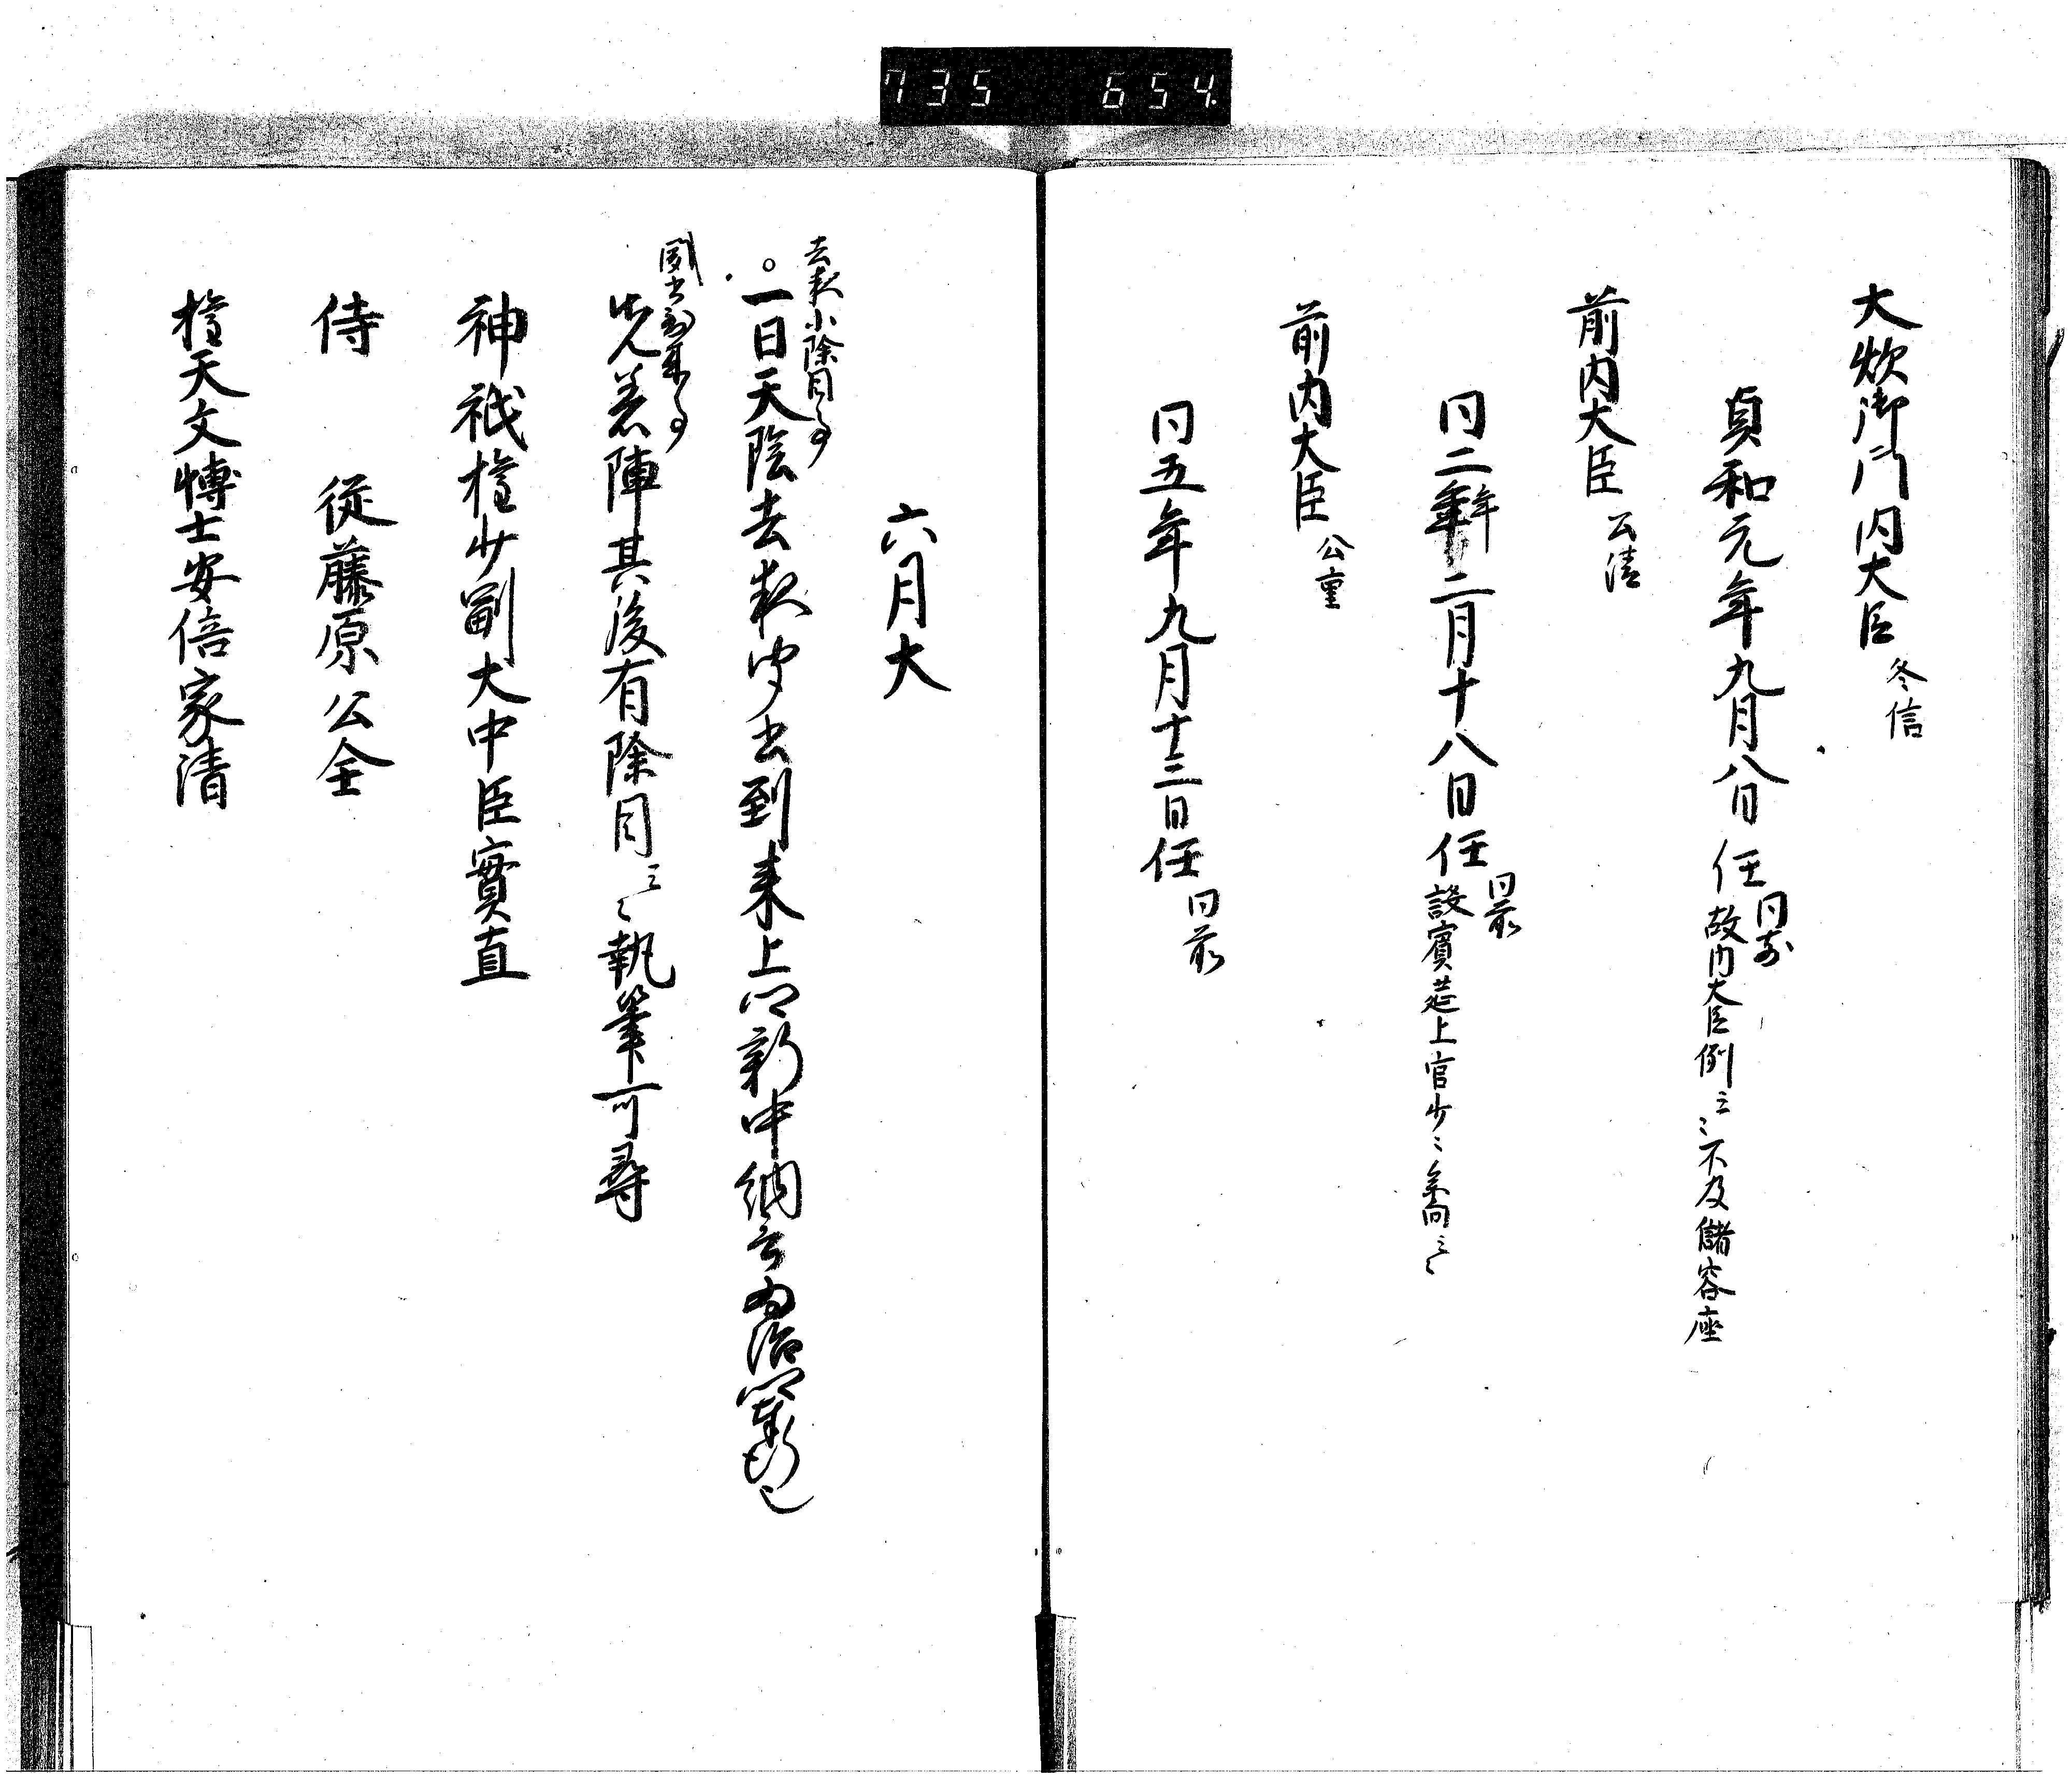 735 654
大炊御門内大臣 冬信
貞和元年九月八日任 同前 故内大臣例云々不及儲客座
前内大臣 公清
同二年二月十八日任 同前 設賓莚上官少々参向云々
前内大臣 公重
同五年九月十三日任 同前
六月大
去夜小除目事
一日天陰去夜聞書到来上卿新中納言為治
聞書到来事
先着陣其後有除目云々執筆可尋
神祇権少副大中臣實直
侍従藤原公全
権天文博士安倍家清